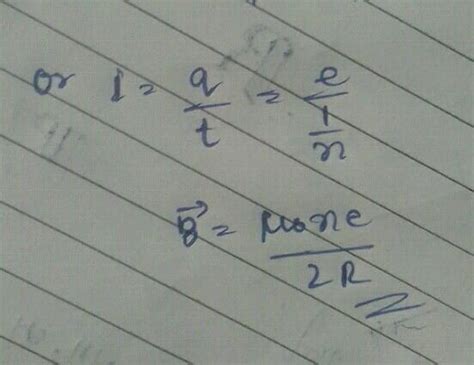 or I = q/t = e/(1/n)
B⃗ = μ₀ne/2R